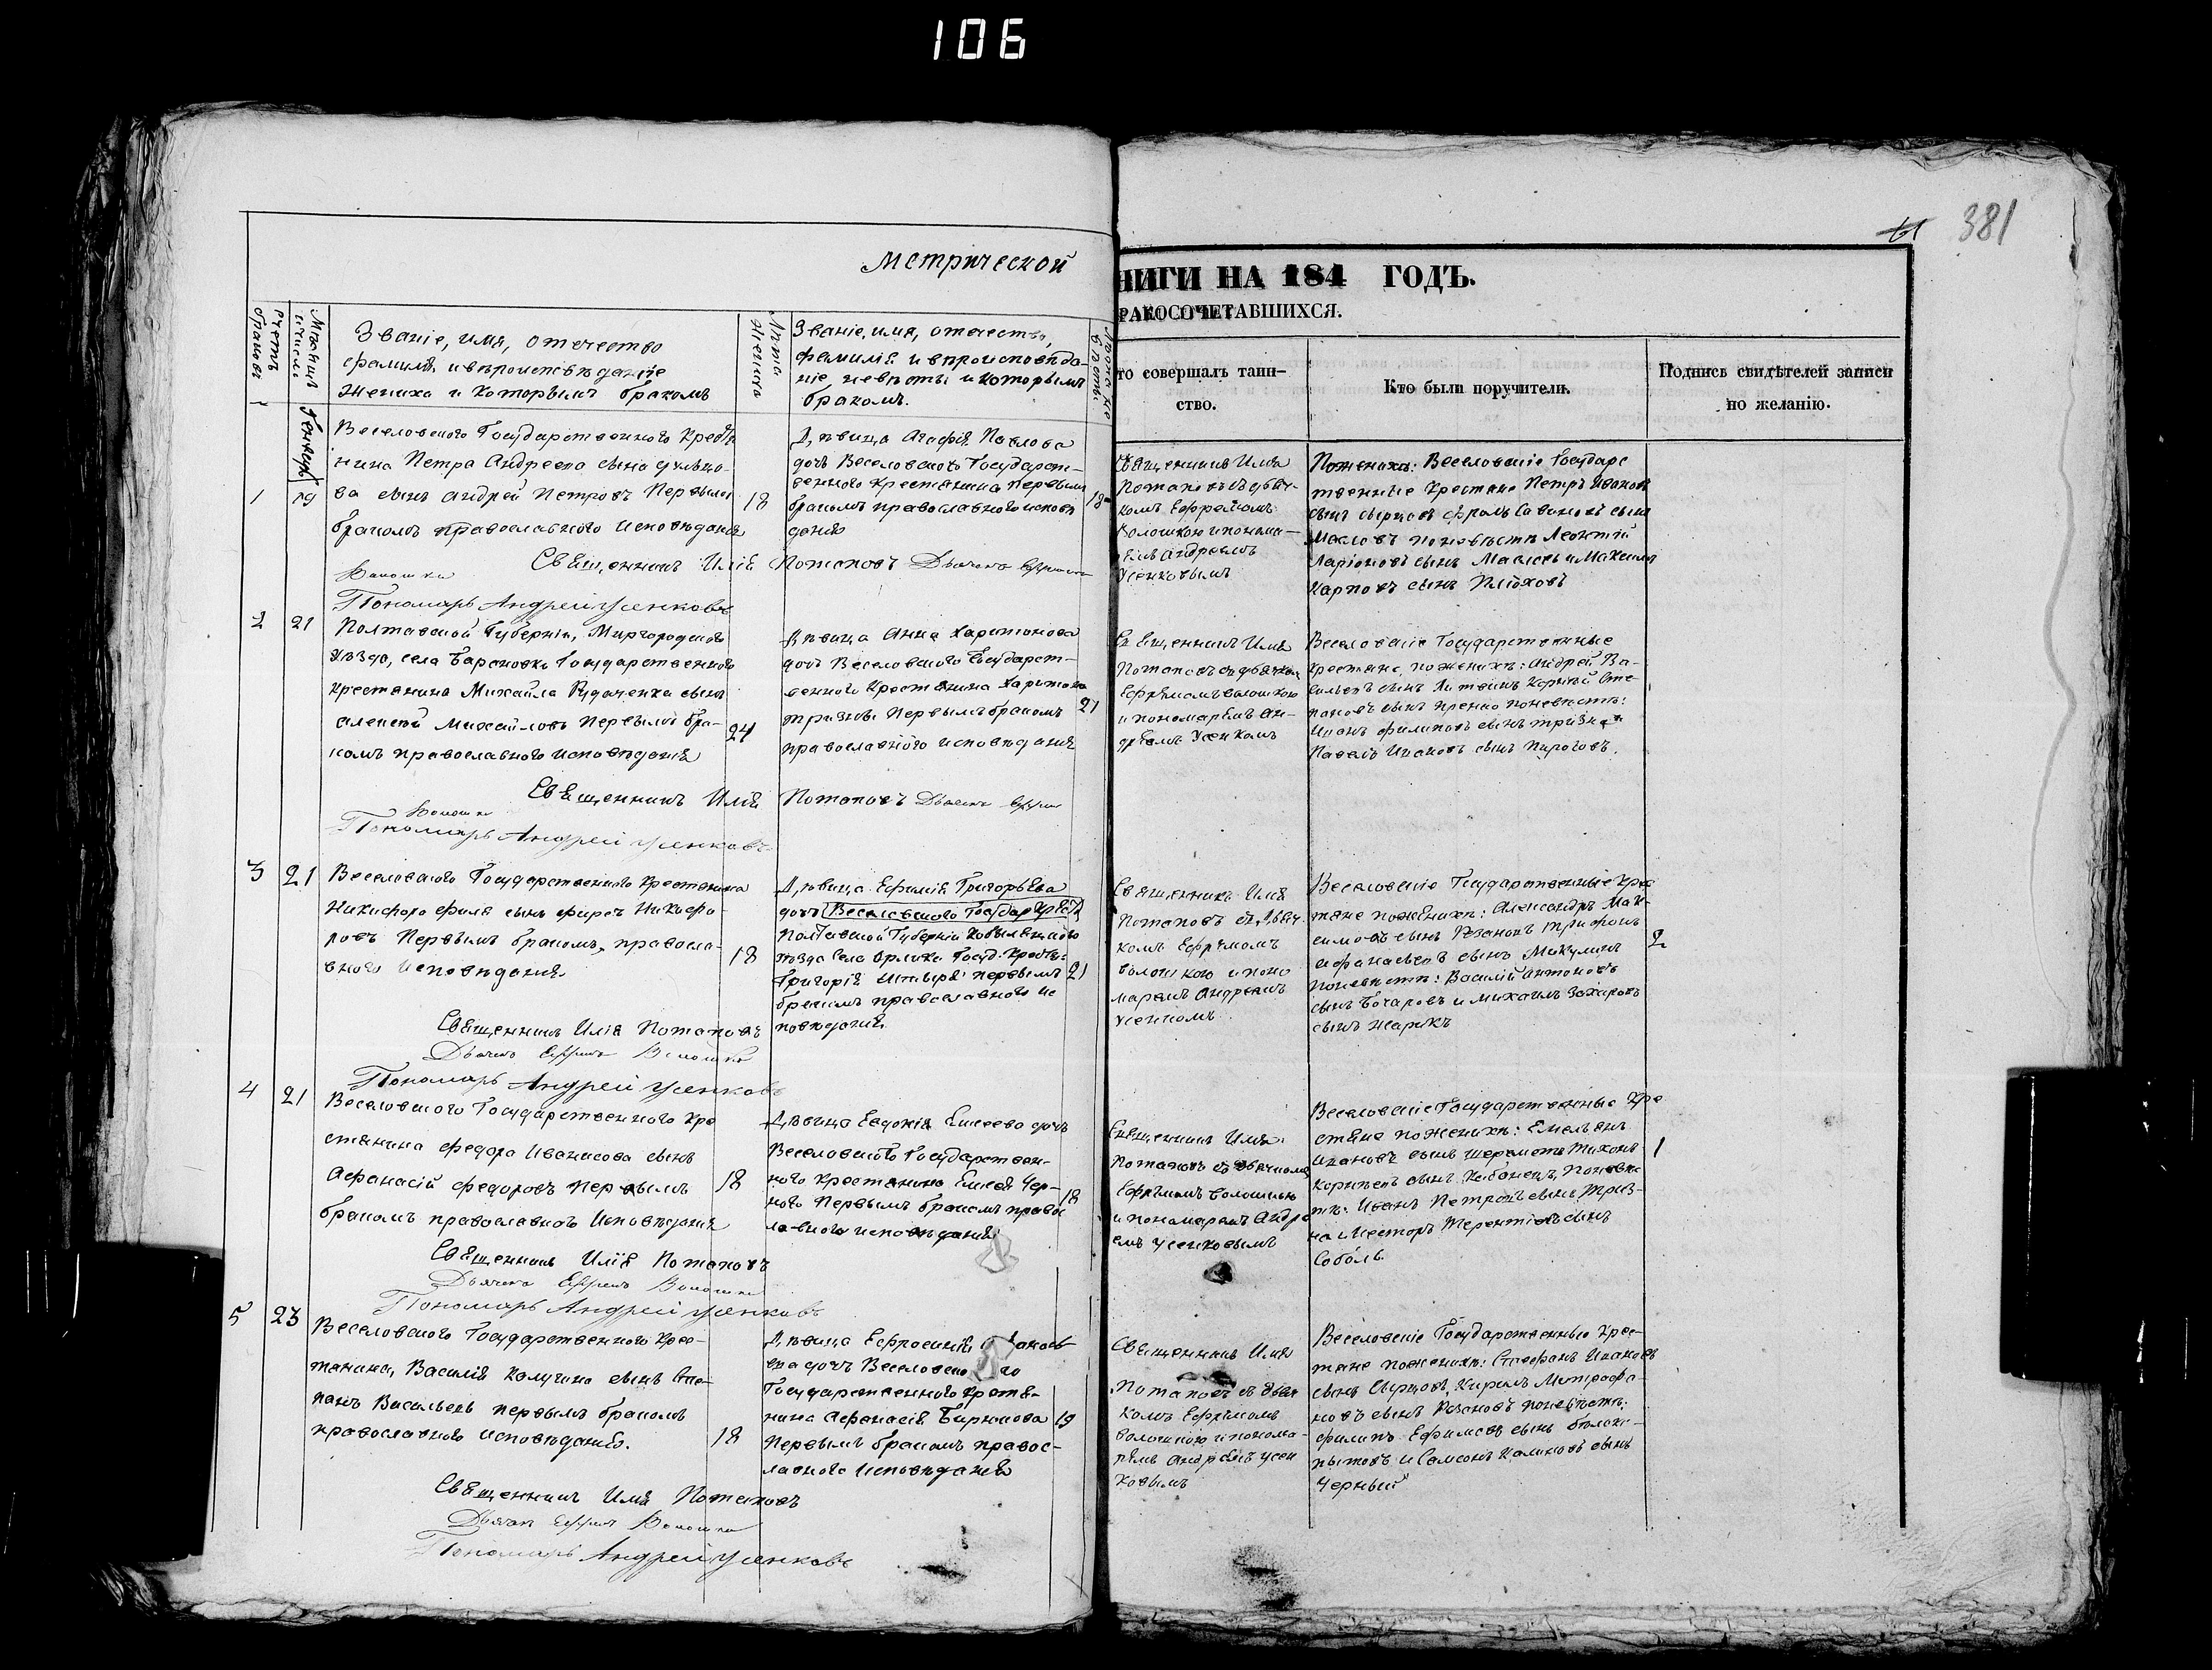 106
381
Метрической
НИГИ НА 184 ГОДЪ.
РАКОСОЧЕТАВШИХСЯ.
счетъ браковъ
Мѣсяцъ и число
Званіе, имя, отечество
фамилія и вѣроисповѣданіе
жениха и которымъ бракомъ
Лѣта жениха
Званіе, имя, отечество,
фамилія и вѣроисповѣда-
ніе невѣсты и которымъ
бракомъ.
то совершалъ таин-
ство.
Кто были поручители.
Подпись свидѣтелей записи
по желанію.
Генварь
1
19
Веселовского Государственного Крестья
нина Петра Андреева сына
ва сынъ Андрей Петровъ Первымъ
бракомъ православного исповѣданія
18
Дѣвица Агафія Павлова
дочь Веселовского Государст-
венного крестянина первымъ
бракомъ православного исповѣ
данія
18
Священникъ Илія
Потаповъ съ дьяч-
комъ Ефремомъ
Волошкою и понома-
ремъ Андреемъ
Усенковымъ
Поженихѣ: Веселовскіе Государс
твенные Крестяне Петръ Ивановъ
сынъ Сырцовъ Фролъ Савиновъ сынъ
Масловъ поневѣстѣ Леонтій
Ларіоновъ сынъ и Максимъ
Карповъ сынъ Плѣховъ
Священникъ Илія Потаповъ Дьячекъ Ефремъ
Волошка
Пономарь Андрей Усенковъ
2
21
Полтавской Губерніи, Миргородского
уѣзда, села Барановки Государственного
крестянина Михайла Рудаченка сынъ
Алексѣй Михайловъ Первымъ бра-
комъ православного исповѣданія
24
Дѣвица Анна Харитонова
дочь Веселовского Государст-
венного Крестянина Харитона
Тризны Первымъ бракомъ
православного исповѣданія
21
Священникъ Илія
Потаповъ съ дьячком
Ефремомъ Волошкою
и пономаремъ Ан-
дреемъ Усенкомъ
Веселовскіе Государственные
крестяне, поженихѣ: Андрей Ва-
сильевъ сынъ Литвинъ Карпъ Сте
пановъ сынъ поневѣстѣ:
Иванъ Филиповъ сынъ Тризна и
Павелъ Ивановъ сынъ Пироговъ.
Священникъ Илія Потаповъ Дьячекъ Ефремъ
Волошка
Пономарь Андрей Усенковъ
3
21
Веселовского Государственного Крестянина
Никифора Филя сынъ Фирсъ Никифо-
ровъ Первымъ бракомъ, правосла-
вного исповѣданія.
18
Дѣвица Ефимія Григорьева
дочь Веселовского Государ Крест
Полтавской Губерніи Кобылякского
уѣзда Села Орлика Госуд. Крестья:
Григорія первымъ
бракомъ православного ис
повѣданія
21
Священникъ Илія
Потаповъ съ Дьяч-
комъ Ефремомъ
Волошкою и поно
маремъ Андреемъ
Усенкомъ
Веселовскіе Государственные Крес
тяне поженихѣ: Александръ Мак-
симовъ сынъ Рязановъ Трифонъ
Афанасьевъ сынъ Микулинъ
поневѣстѣ: Василій Антоновъ
сынъ Бочаровъ и Михаилъ Захаровъ
сынъ Жарикъ
2
Священникъ Илія Потаповъ
Дьячекъ Ефремъ Волошка
Пономарь Андрей Усенковъ
4
21
Веселовского Государственного Кре
стянина Федора Иванисова сынъ
Афанасій Федоровъ Первымъ
бракомъ православного Исповѣданія
18
Дѣвица Евдокія Елисеева дочь
Веселовского Государствен-
ного Крестянина Елисея Чер-
ного Первымъ бракомъ правос
лавного исповѣданія
18
Священникъ Илія
Потаповъ съ дьячкомъ
Ефремомъ Волошкою
и пономаремъ Андре
емъ Усенковымъ
Веселовскіе Государственные Кре
стяне поженихѣ: Емельянъ
Ивановъ сынъ Шереметъ Тихонъ
Корнѣевъ сынъ Кабанецъ, Поневѣс
тѣ: Иванъ Петровъ сынъ Триз-
на и Несторъ Терентіевъ сынъ
Соболь.
1
Священникъ Илія Потаповъ
Дьячекъ Ефремъ Волошка
Пономарь Андрей Усенковъ
5
23
Веселовского Государственного Крес-
тянина, Василія Калугина сынъ Сте-
панъ Васильевъ первымъ бракомъ
православного исповѣданія.
18
Дѣвица Ефросинія
ва дочь Веселовско го
Государственного Крестя-
нина Афанасія Бирюкова
Первымъ бракомъ правос-
лавного Исповѣданія
19
Священникъ Илія
Потаповъ съ дьяч
комъ Ефремомъ
Волошкою и понома-
ремъ Андреемъ Усен
ковымъ
Веселовскіе Государственные Крес-
тяне поженихѣ: Стефанъ Ивановъ
сынъ Сырцовъ, Кирилъ Митрофа-
новъ сынъ Рязановъ поневѣстѣ:
Филипъ Ефимовъ сынъ Бѣлоко-
пытовъ и Самсонъ Калиновъ сынъ
Черный
Священникъ Илія Потаповъ
Дьячекъ Ефремъ Волошка
Пономарь Андрей Усенковъ